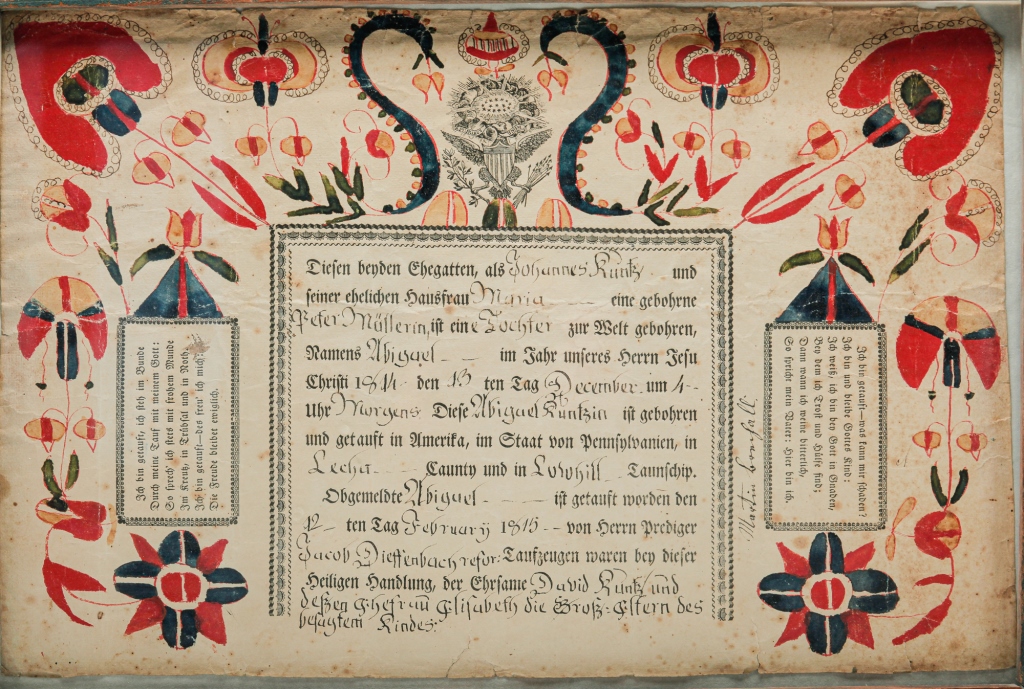 Diesen beyden Ehegatten, als Johannes Kuntz und
seiner ehelichen Hausfrau Maria eine gebohrne
Peter Müllerin, ist eine Tochter zur Welt gebohren,
Namens Abigael im Jahr unseres Herrn Jesu
Christi 1814 den 13 ten Tag December um 4
Uhr Morgens Diese Abigael Kuntzin ist gebohren
und getauft in Amerika, im Staat von Pennsylvanien, in
Lecha Caunty und in Lowhill Taunschip.
Obgemeldte Abigael ist getauft worden den
12 ten Tag February 1815 von Herrn Prediger
Jacob Dieffenbach refor: Taufzeugen waren bey dieser
Heiligen Handlung, der Ehrsame David Kuntz und
deßen Ehefrau Elisabeth die Groß-Eltern des
besagtem Kindes:
Ich bin getauft, ich steh im Bunde
Durch meine Tauf mit meinem Gott:
So sprech' ich stets mit frohem Munde
Im Kreutz, in Trübsal und in Noth,
Ich bin getauft—des freu' ich mich;
Die Freude bleibet ewiglich.
Ich bin getauft—was kann mir schaden?
Ich bin und bleibe Gottes Kind:
Ich weiß, ich bin bey Gott in Gnaden,
Bey dem ich Trost und Hülfe find;
Dann wann ich weine bitterlich,
So spricht mein Vater: Hier bin ich.
Martin